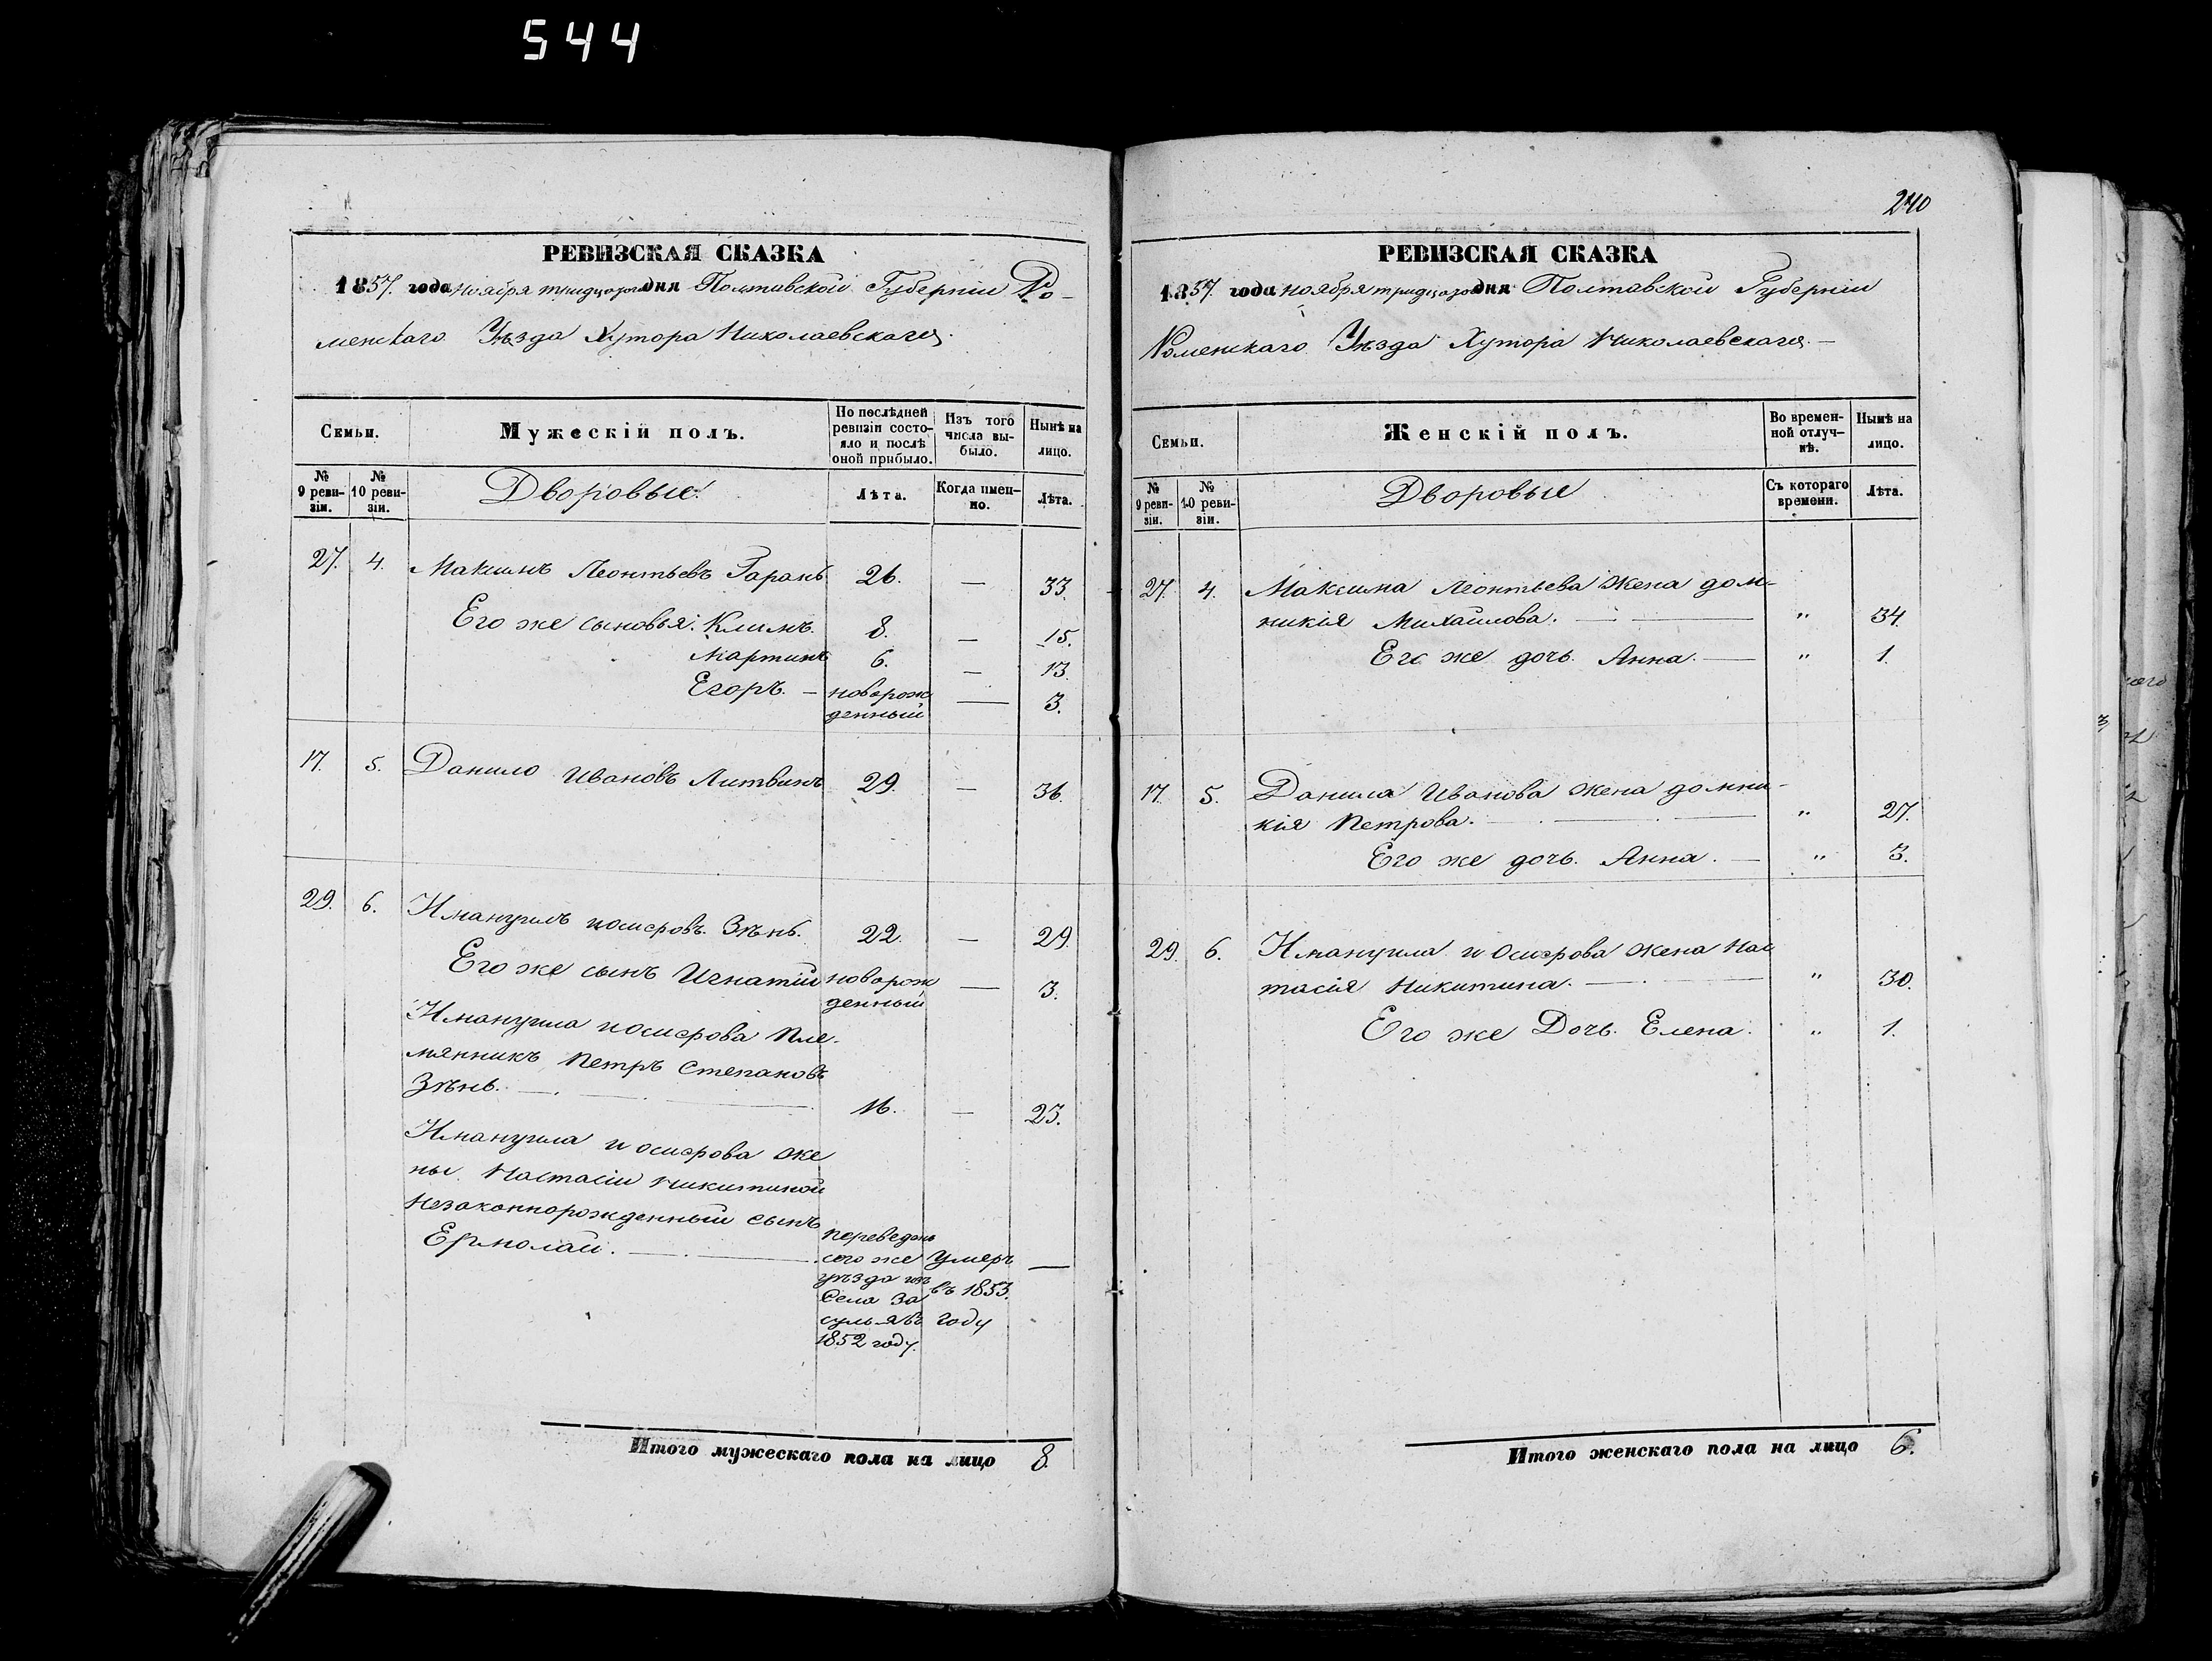 544
240
РЕВИЗСКАЯ СКАЗКА
1857. года ноября тридцатого дня Полтавской Губерніи Ро-
менскаго Уѣзда Хутора Николаевскаго.
Семьи.
Мужескій полъ.
По послѣдней ревизіи состо-яло и послѣ оной прибыло.
Изъ того числа вы-было.
Нынѣ на лицо.
№ 9 реви-зіи.
№ 10 реви-зіи.
Дворовые.
Лѣта.
Когда имен-но.
Лѣта.
27. 4. Максимъ Леонтьевъ 26. — 33.
Его же сыновья: Климъ. 8. — 15.
Мартинъ 6. — 13.
Егоръ. — новорож — 3.
денный
17. 5. Данило Ивановъ Литвинъ 29. — 36.
29. 6. Имануилъ иосифовъ Зѣнь. 22. — 29.
Его же сынъ Игнатій новорож — 3.
денный
Имануила иосифова пле-
мянникъ Петръ Степановъ
Зѣнь. — 16. — 23.
Имануила иосифова же
ны Настасіи Никитиной
Незаконнорожденный сынъ
Ермолай. —
переведенъ
сего же
уѣзда изъ
Села За
сулья въ
1852 году.
Умеръ
въ 1853.
году
—
Итого мужескаго пола на лицо 8.
РЕВИЗСКАЯ СКАЗКА
1857. года ноября тридцатого дня Полтавской Губерніи
Роменскаго Уѣзда Хутора Николаевскаго. —
Семьи.
Женскій полъ.
Во времен-ной отлуч-кѣ.
Нынѣ на лицо.
№ 9 реви-зіи.
№ 10 реви-зіи.
Дворовые
Съ котораго времени.
Лѣта.
27. 4. Максима Леонтьева жена дом-
никія Михайлова. — " 34.
Его же дочь Анна. — " 1.
17. 5. Данила Иванова жена домни-
кія Петрова. — " 27.
Его же дочь. Анна. — " 3.
29. 6. Имануила иосифова жена Нас
тасія Никитина. — " 30.
Его же Дочь. Елена. " 1.
Итого женскаго пола на лицо 6.